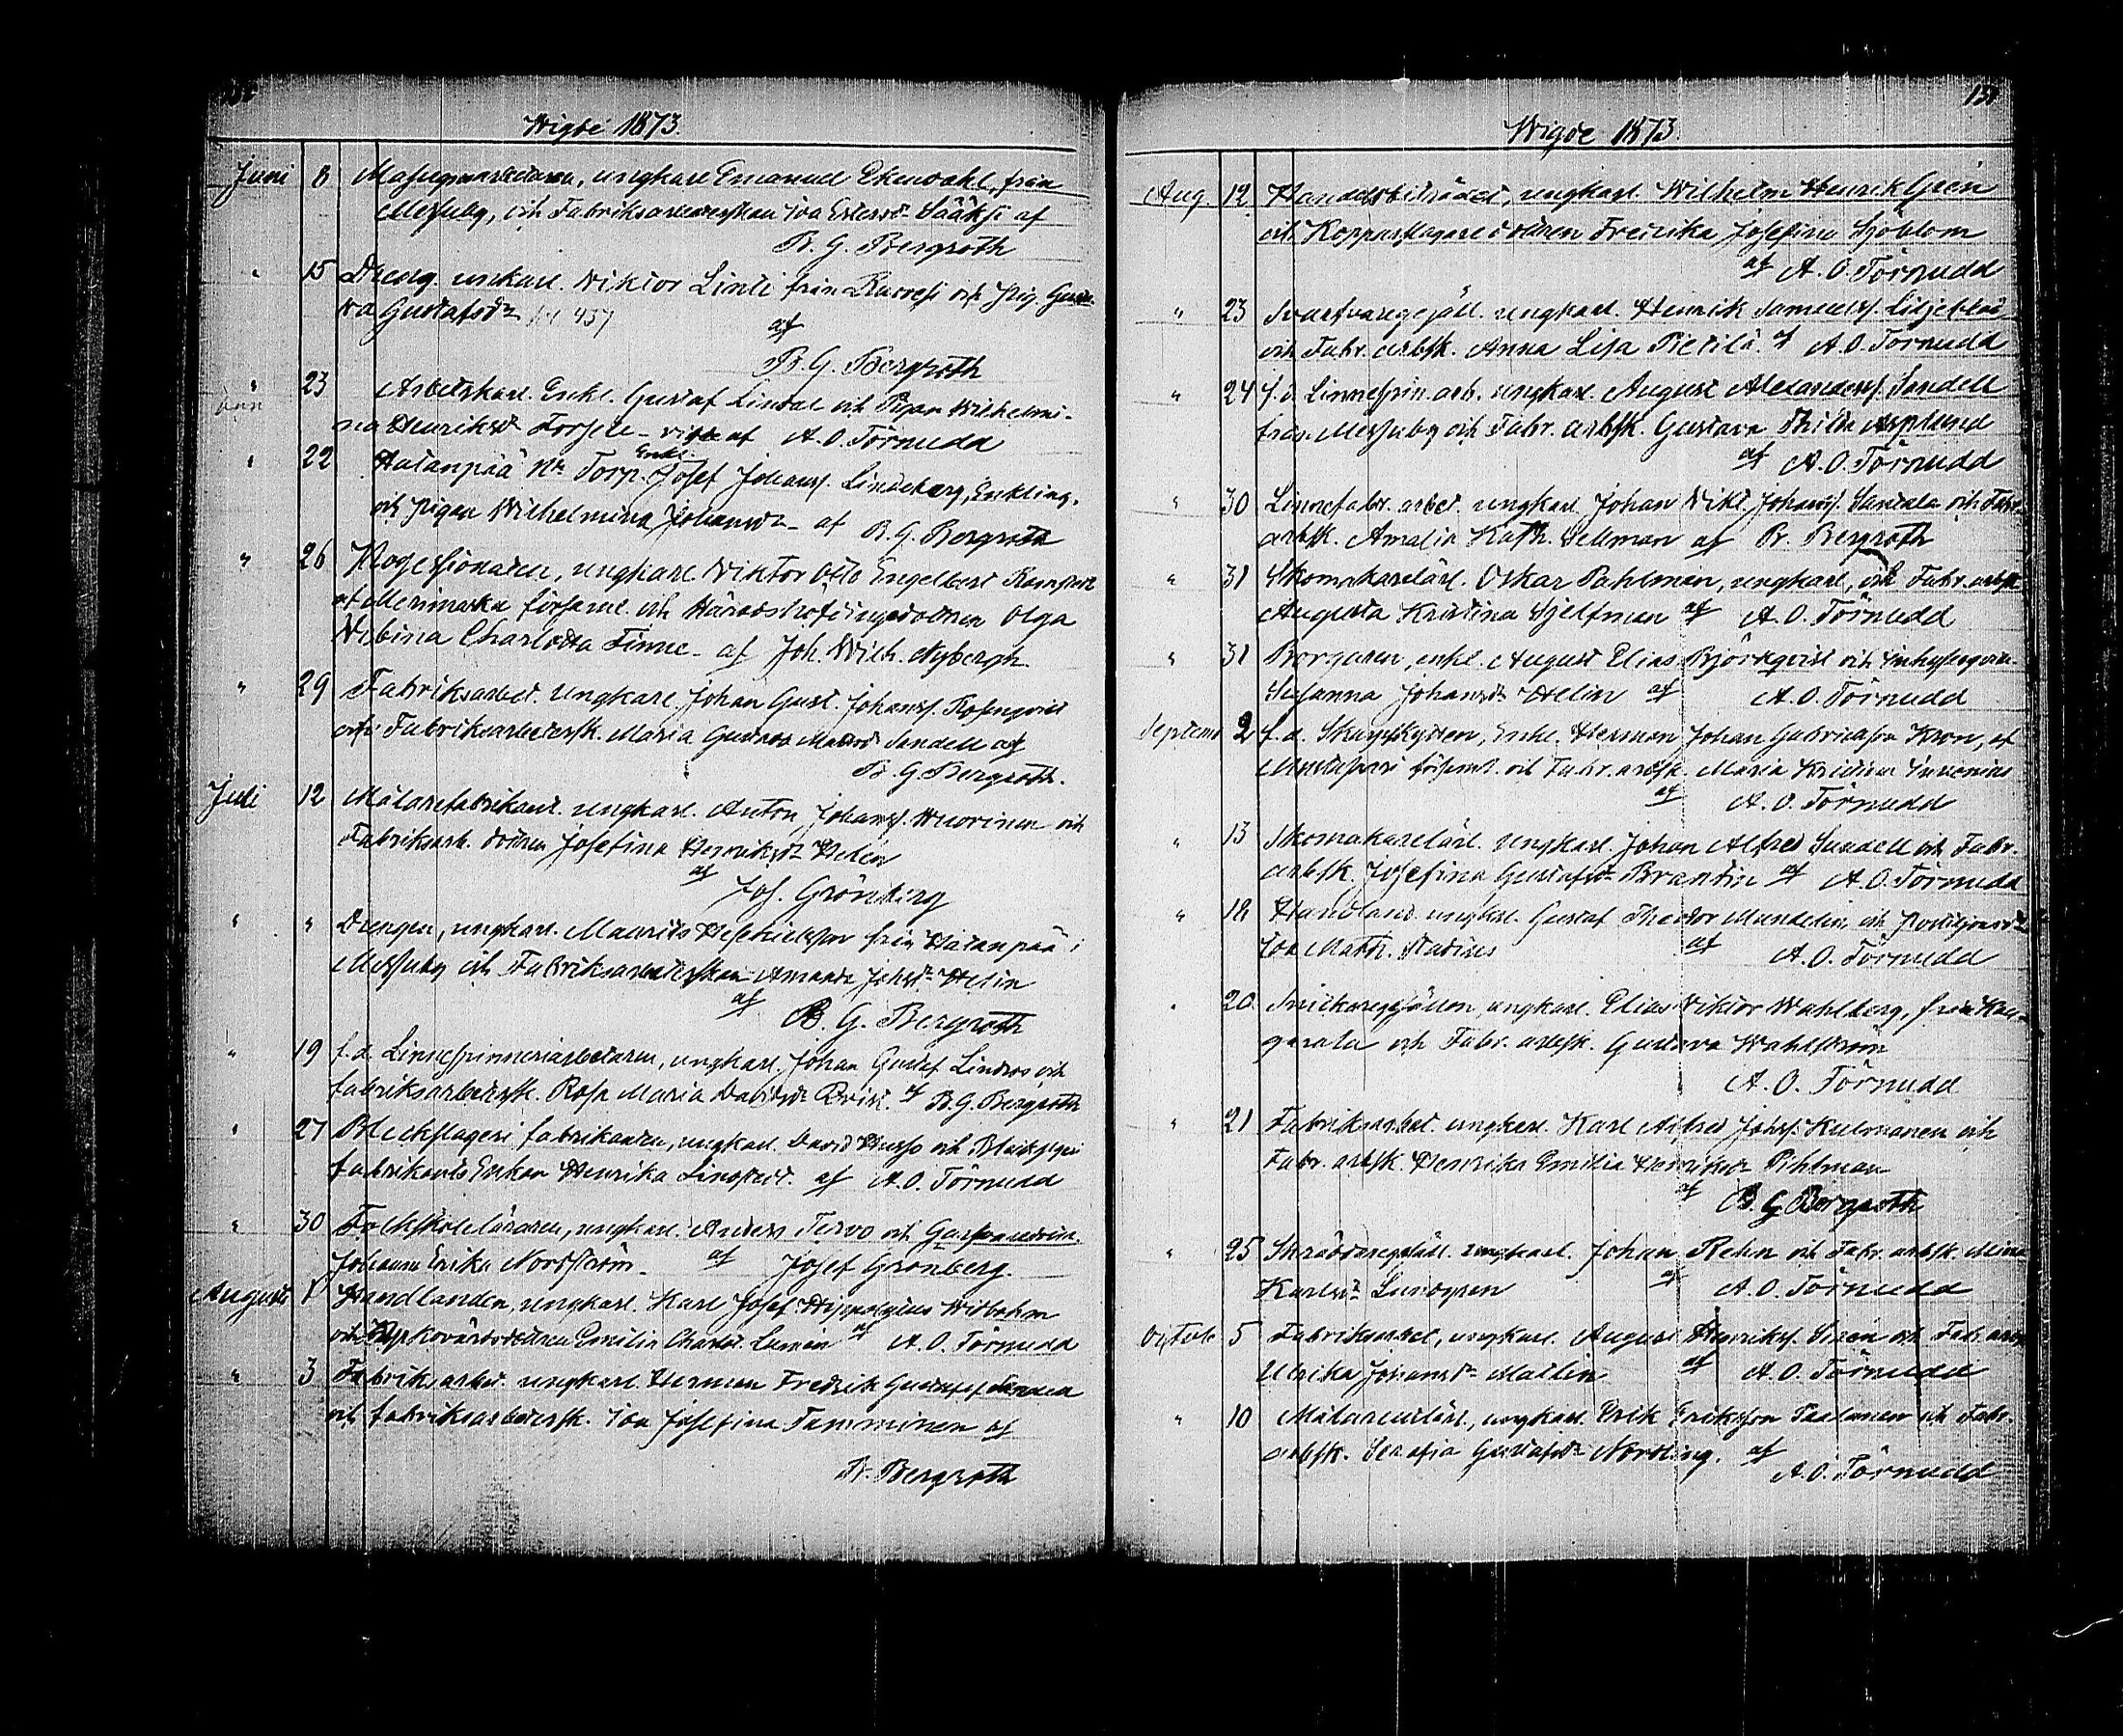 Wigde 1873.
Juni 8 Masugnsarbetaren, ungkarl Emanuel Ekewahl, från
Messuby, och Fabriksarbeterskan Ida Erlsdr Sääksi af
B. G. Bergroth
" 15 Dreng. unkarl. Wiktor Linti från Ruovesi och pig. Gusta-
va Gustafsdr
af
B. G. Bergroth
" 23 Arbetskarl. Enkl. Gustaf Lindal och Pigan Wilhelmi-
na Henriksdr Forsell af A. O. Törnudd
" 22 Hatanpää Nr Torp. Enkl. Josef Johanss. Lindeberg, Enkling,
och pigan Wilhelmina Johansdr af B. G. Bergroth
" 26 Possessionaten, ungkarl Wiktor Otto Engelbert
af Merimasku församl. och Häradshöfdingedottren Olga
Charlotta Finne af Joh. Wilh. Nybergh.
" 29 Fabriksarbet. ungkarl. Johan Gust. Johanss. Rosenqvist
och Fabriksarbetersk. Maria Sandell af
B. G. Bergroth.
Juli 12 ungkarl. Anton Johanss. Wuorinen och
Fabriksarb. dottren Josefina Henriksdr Helén
af
Jos. Grönberg
" " Drengen, ungkarl. Maurits från Hatanpää i
Messuby och Fabriksarbeterskan Amanda Johsdr Helin
af
B. G. Bergroth
" 19 f. d. Linnespinneriarbetaren, ungkarl. Johan Gustaf Lindros och
fabriksarbetersk. Rosa Maria Davidsdr Qvist. af B. G. Bergroth
" 27 Bleckslageri fabrikanten, ungkarl. David och Bleckslageri
fabrikants Enkan Henrika Lingstedt. af A. O. Törnudd
" 30 Folkskoleläraren, ungkarl. Anders Tervo och
Johanna Erika Nordström af Josef Grönberg.
Augusti 1 Handlanden, ungkarl. Karl Josef Hyppolytus Wibohm
och Emilia Charlott. Lumén af A. O. Törnudd
" 3 Fabriksarbet. ungkarl. Herman Fredrik
och fabriksarbetersk. Ida Josefina Tamminen af
Br. Bergroth
131
Wigde 1873.
Aug. 12 Handelsbiträdet, ungkarl. Wilhelm Henrik Grén
och Kopparslagare dottren Fredrika Josefina Sjöblom
af A. O. Törnudd
" 23 Svarfvaregesäll. ungkarl. Henrik Samuelss. Liljeblad
och Fabr. arbsk. Anna Lisa Pietilä. af A. O. Törnudd
" 24 f. d. Linnespin. arb. ungkarl. August Alexanderss. Sandell
från Messuby och Fabr. arbsk. Gustava Asplund
af A. O. Törnudd
" 30 Linnefabr. arbet. ungkarl Johan Vikt. Johanss. Santala och Fabr.
arbsk. Amalia Kath. Sellman af Br. Bergroth
" 31 Skomakarelärl. Oskar Pahlman, ungkarl, och Fabr. arbsk
Augusta Kristina Hjelfman af A. O. Törnudd
" 31 Borgaren, enkl. August Elias Björkqvist och
Susanna Johansdr Helin af A. O. Törnudd
Septemb 2 f. d. Skarpskytten, Enkl. Herman Johan Gabrielsson Kron, af
Mustasaari församl. och Fabr. arbsk. Maria Kristina
af A. O. Törnudd
" 13 Skomakarelärl. ungkarl. Johan Alfred Sundell och Fabr.
arbsk. Josefina Gustafsdr Brandin af A. O. Törnudd
" 18 Handland. ungkarl. Gustaf Theodor Mundelin, och
Ida Math. Stadius af A. O. Törnudd
" 20 Snickaregesällen, ungkarl. Elias Viktor Wahlberg, från Kan-
gasala och Fabr. arbsk. Gustava Wahlström
A. O. Törnudd
" 21 Fabriksarbet. ungkarl. Karl Alfred Johss. Kulovanen och
Fabr. arbsk. Henrika Emilia Henriksdr Pihlman
af B. G. Bergroth
" 25 Skräddaregesäll. ungkarl. Johan Rehn och Fabr. arbsk. Mina
Karlsdr Lundgren af A. O. Törnudd
Octob 5 Fabriksarbet, ungkarl. August Henrikss. Sirén och Fabr. arbsk
Ulrika Johansdr Mattlin af A. O. Törnudd
" 10 Målarelärl., ungkarl. Erik Eriksson Paalanen och Fabr.
arbsk. Serafia Gustafsdr Nordling. af
A. O. Törnudd